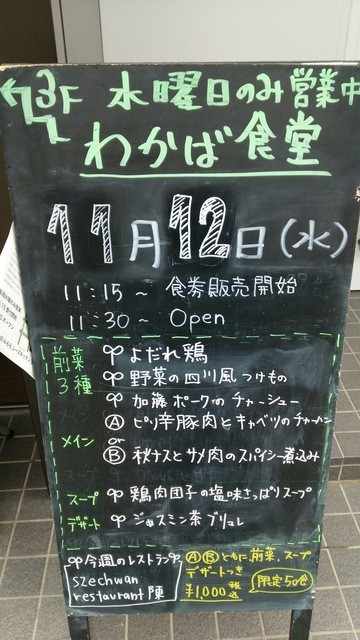 3F 水曜日のみ営業中
わかば食堂
11月12日(水)
11:15～ 食券販売開始
11:30～ Open
前菜 よだれ鶏
3種 野菜の四川風つけもの
加藤ポークのチャーシュー
メイン Ⓐ ピリ辛豚肉とキャベツのチャーハン
or
Ⓑ 秋ナスとサメ肉のスパイシー煮込み
スープ 鶏肉団子の塩味さっぱりスープ
デザート ジャスミン茶ブリュレ
今週のレストラン
szechwan
restaurant 陳
ⒶⒷともに前菜、スープ
デザートつき
¥1,000 税込
限定50食